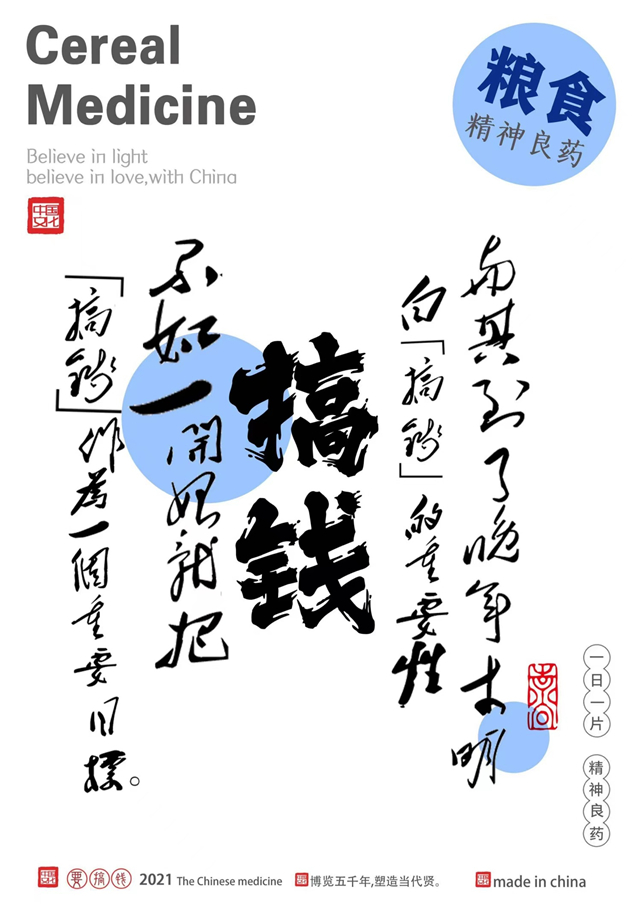 Cereal
Medicine
Believe in light
believe in love,with China
中国
文化
粮食
精神良药
与其到了晚年才明
白「搞錢」的重要性
搞钱
不如一開始就把
「搞錢」作為一個重要目標。
一日一片 精神良药
要搞钱 2021 The Chinese medicine 博览五千年,塑造当代贤。 made in china